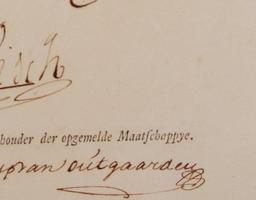 isch
houder der opgemelde Maatſchappye.
van outgaarden